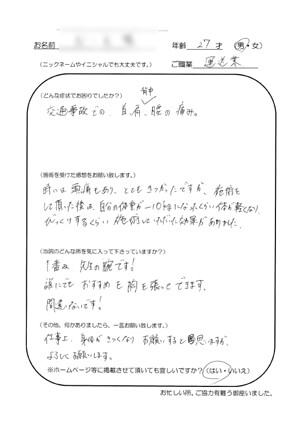 お名前
年齢 27才 (男・女)
(ニックネームやイニシャルでも大丈夫です。) ご職業 運送業
(どんな症状でお困りでしたか?)
背中
交通事故での、首、肩、腰の痛み。
(施術を受けた感想をお願い致します。)
時には頭痛もあり、とてもきつかったですが、施術を
して頂いた後は、自分の体重が-10㎏になったくらい体が軽くなり、
びっくりするくらい施術していただいた効果がありました。
(当院のどんな所を気に入って下さっていますか?)
1番は先生の腕です!
誰にでもおすすめを胸を張ってできます。
間違いないです!
(その他、何かありましたら、一言お願い致します。)
仕事上、身体がきつくなりお願いすると思いますが、
よろしくお願いします。
※ホームページ等に掲載させて頂いても宜しいですか?(はい・いいえ)
お忙しい所、ご協力有難う御座いました。